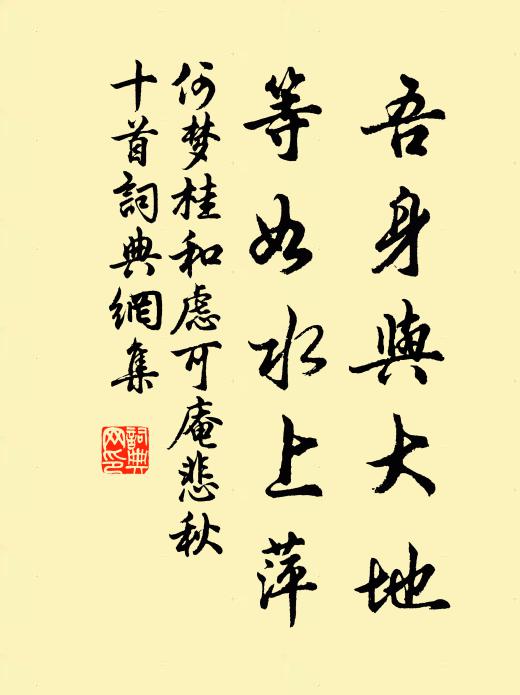 吾身與大地
等如水上萍
何梦桂和處可庵悲秋
十首詞典網集
詞典
网印